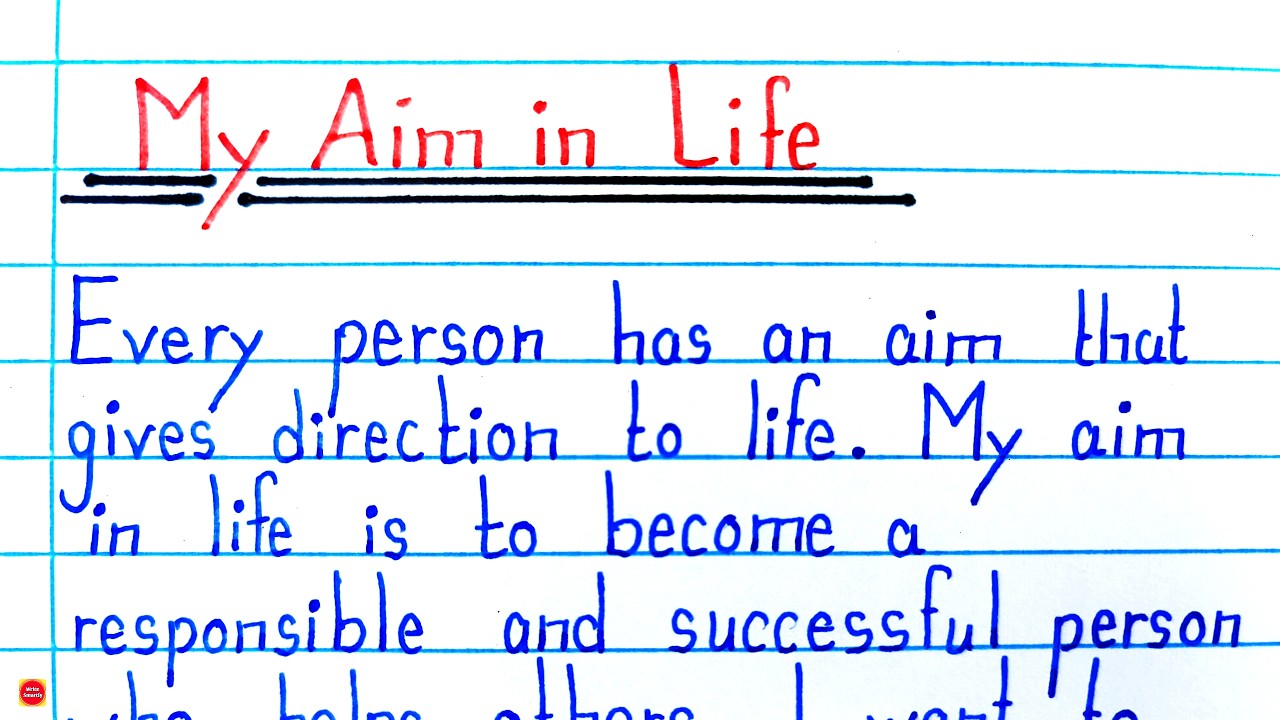 My Aim in Life
Every person has an aim that
gives direction to life. My aim
in life is to become a
responsible and successful person
who helps others. I want to
Write Smartly